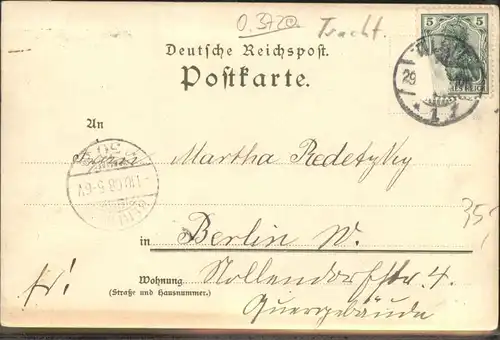 Tracht.
5
Deutsche Reichspost.
Postkarte.
29
* 1 1
An
Martha Redetzky
in Berlin W.
Wohnung Nollendorfstr. 4.
(Straße und Hausnummer.)
Quergebäude
fr!